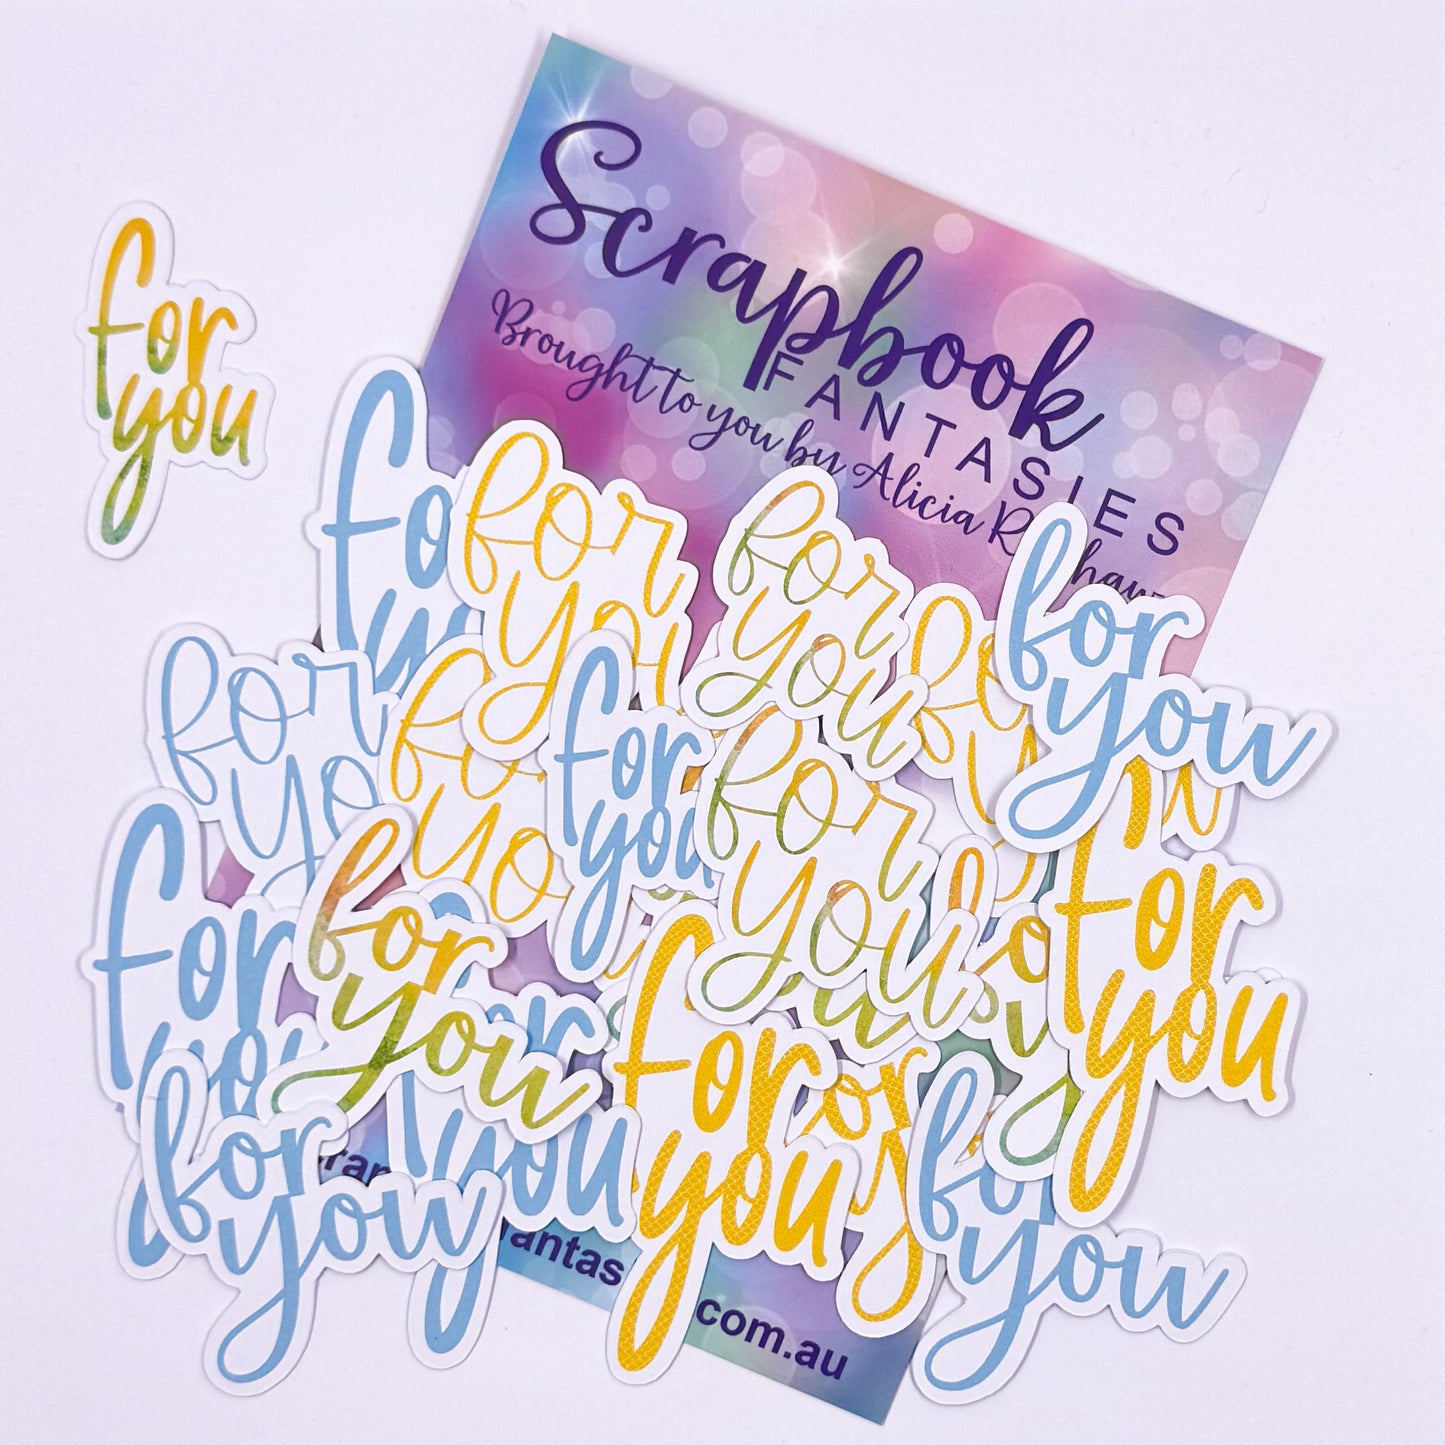 Scrapbook
FANTASIES
Brought to you by Alicia
for
you
for
you
for
you
for
you
for
you
for
you
for
you
for
you
for
you
for
you
for
you
for
you
for
you
for
you
for
you
for
you
for
you
com.au